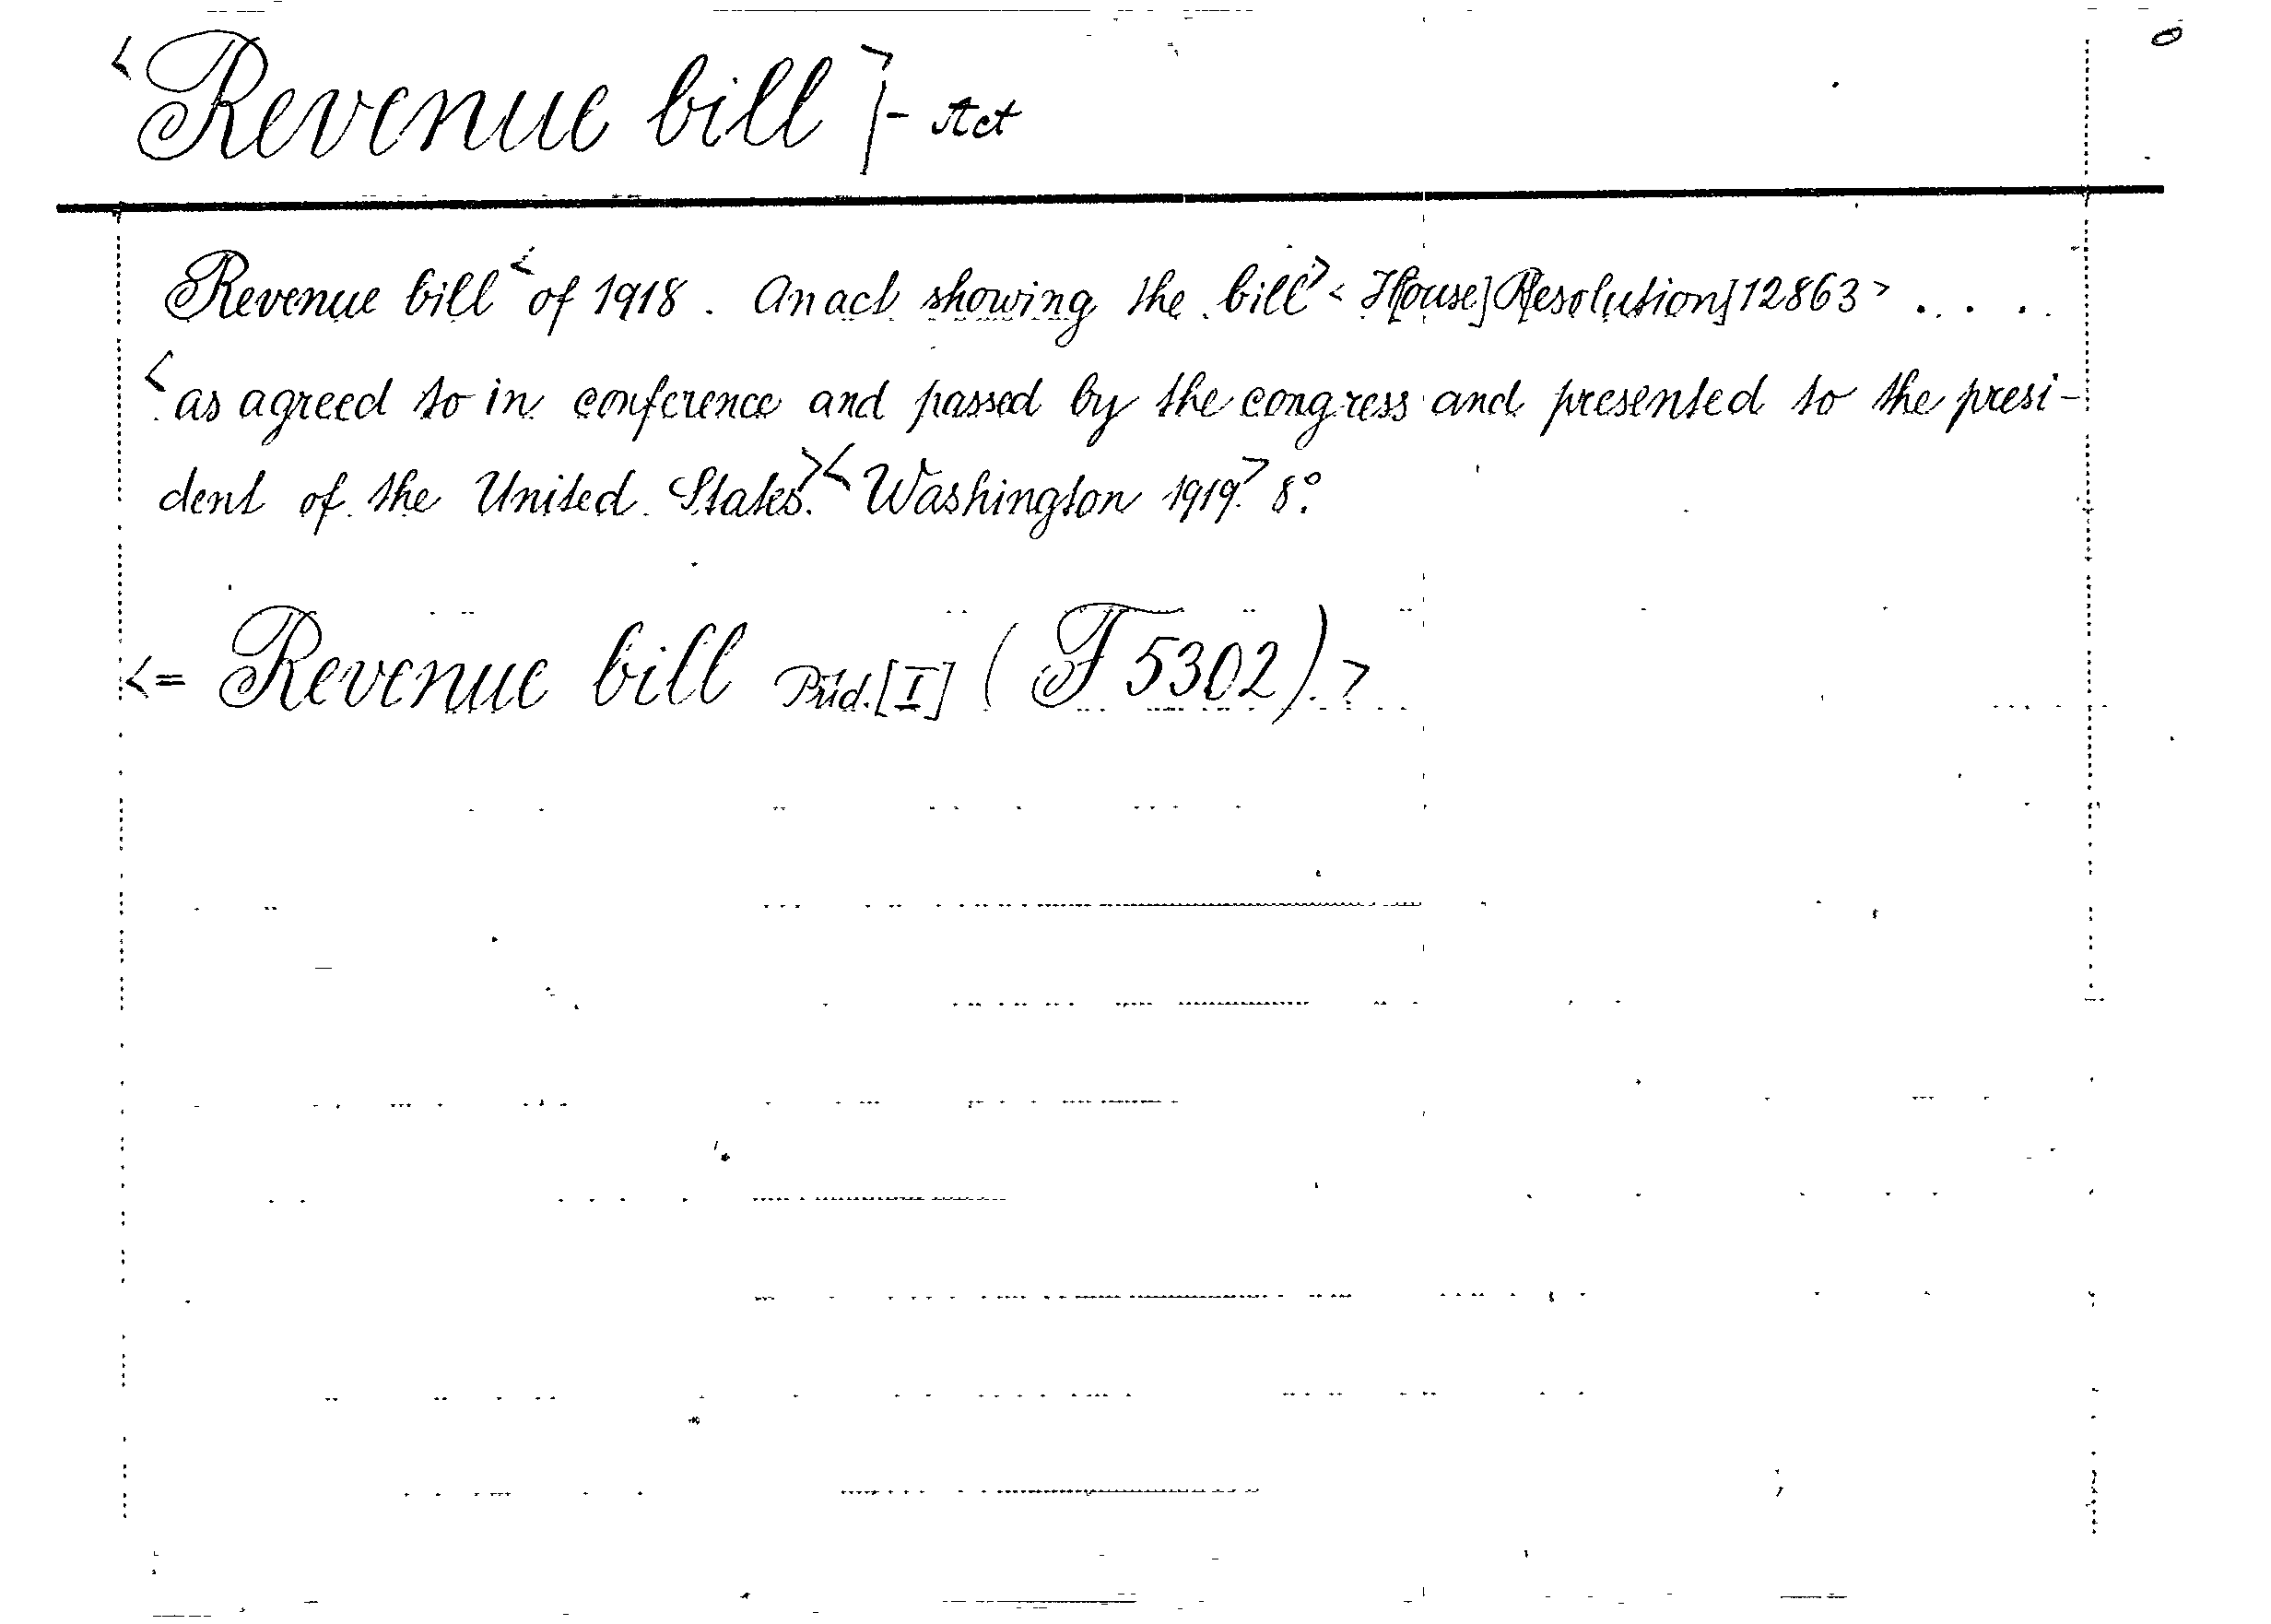 <Revenue bill> |- Act
Revenue bill <of 1918. An act showing the bill> <H[ouse] R[esolution] 12863> . . . .
<as agreed to in conference and passed by the congress and presented to the presi-
dent of the United States.> <Washington 1919.> 8°.
<= Revenue bill Präd. [I] (F 5302).>